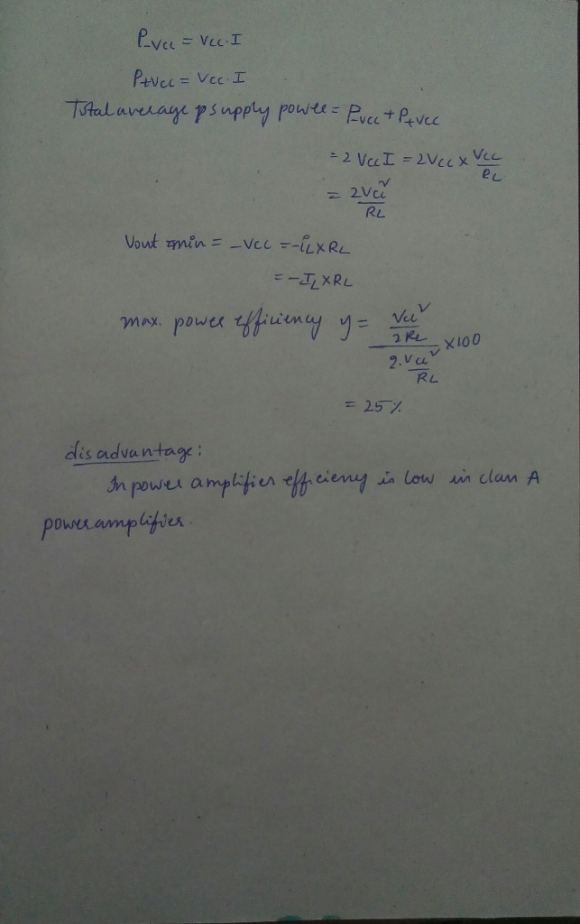 P-VCC = VCC·I
P+VCC = VCC·I
Total average supply power = P-VCC + P+VCC
= 2 VCC I = 2VCC × VCC/RL
= 2VCC²/RL
Vout min = -VCC = -iL×RL
= -IL×RL
max. power efficiency η = (VCC²/2RL)/(2·VCC²/RL) ×100
= 25%
disadvantage:
In power amplifier efficiency is low in class A
power amplifier.